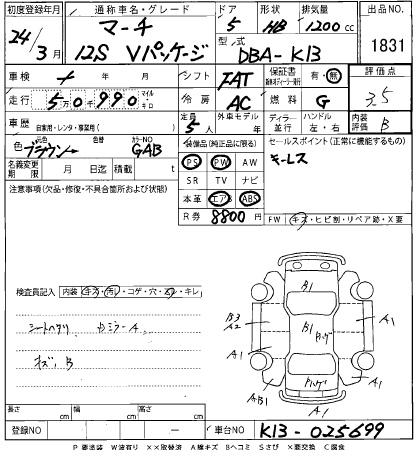 初度登録年月 通称車名・グレード ドア 形状 排気量 出品NO
24/3月 マーチ 5 HB 1200cc 1831
12S Vパッケージ 型式 DBA-K13
車検 年 月 シフト FAT 保証書 有・無 評価点
走行 5万0千990 マイル キロ 冷房 AC 燃料 G 3.5
車歴 自家用・レンタ・事業用( ) 定員 5人 外車モデル 年 ディーラー 並行 ハンドル 左・右 内装評価 B
色 元色 ブラウン 色替 カラーNO GAB 装備品(純正品に限る) セールスポイント(正常に機能するもの)
名義変更期限 月 日迄 積載 t PS PW AW キーレス
注意事項(欠品・修復・不具合箇所および状態) SR TV ナビ
本革 エアB ABS
R券 8800円 FW キズ・ヒビ割・リペア跡・X要
検査員記入 内装(キズ・汚れ・コゲ・穴・スレ・キレ)
シートヘタリ カミラーA
キズ、B
B1
B3
A2
B1
A1
A1
A1
AB1
A1
長さ cm 幅 cm 高さ cm
登録NO - 車台NO K13-025699
P要塗装 W波有り ××取替済 A線キズ Bヘコミ Sさび ×要交換 C腐食